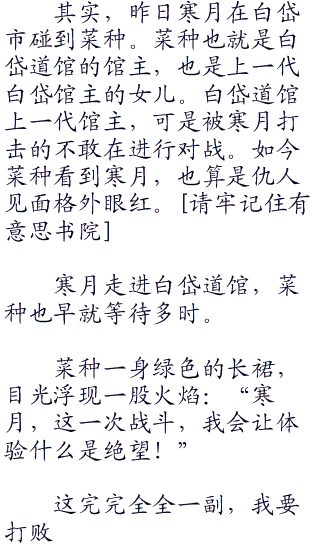 其实，昨日寒月在白岱
市碰到菜种。菜种也就是白
岱道馆的馆主，也是上一代
白岱馆主的女儿。白岱道馆
上一代馆主，可是被寒月打
击的不敢在进行对战。如今
菜种看到寒月，也算是仇人
见面格外眼红。[请牢记住有
意思书院]
寒月走进白岱道馆，菜
种也早就等待多时。
菜种一身绿色的长裙，
目光浮现一股火焰：“寒
月，这一次战斗，我会让体
验什么是绝望！”
这完完全全一副，我要
打败